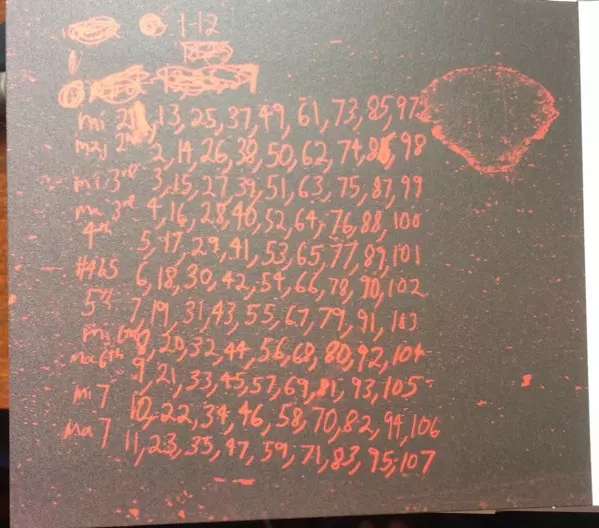 1-12
mi 2 1, 13, 25, 37, 49, 61, 73, 85, 97
maj 2nd 2, 14, 26, 38, 50, 62, 74, 86, 98
mi 3rd 3, 15, 27, 39, 51, 63, 75, 87, 99
ma 3rd 4, 16, 28, 40, 52, 64, 76, 88, 100
4th 5, 17, 29, 41, 53, 65, 77, 89, 101
#4b5 6, 18, 30, 42, 54, 66, 78, 90, 102
5th 7, 19, 31, 43, 55, 67, 79, 91, 103
min 6th 8, 20, 32, 44, 56, 68, 80, 92, 104
ma 6th 9, 21, 33, 45, 57, 69, 81, 93, 105
mi 7 10, 22, 34, 46, 58, 70, 82, 94, 106
Ma 7 11, 23, 35, 47, 59, 71, 83, 95, 107